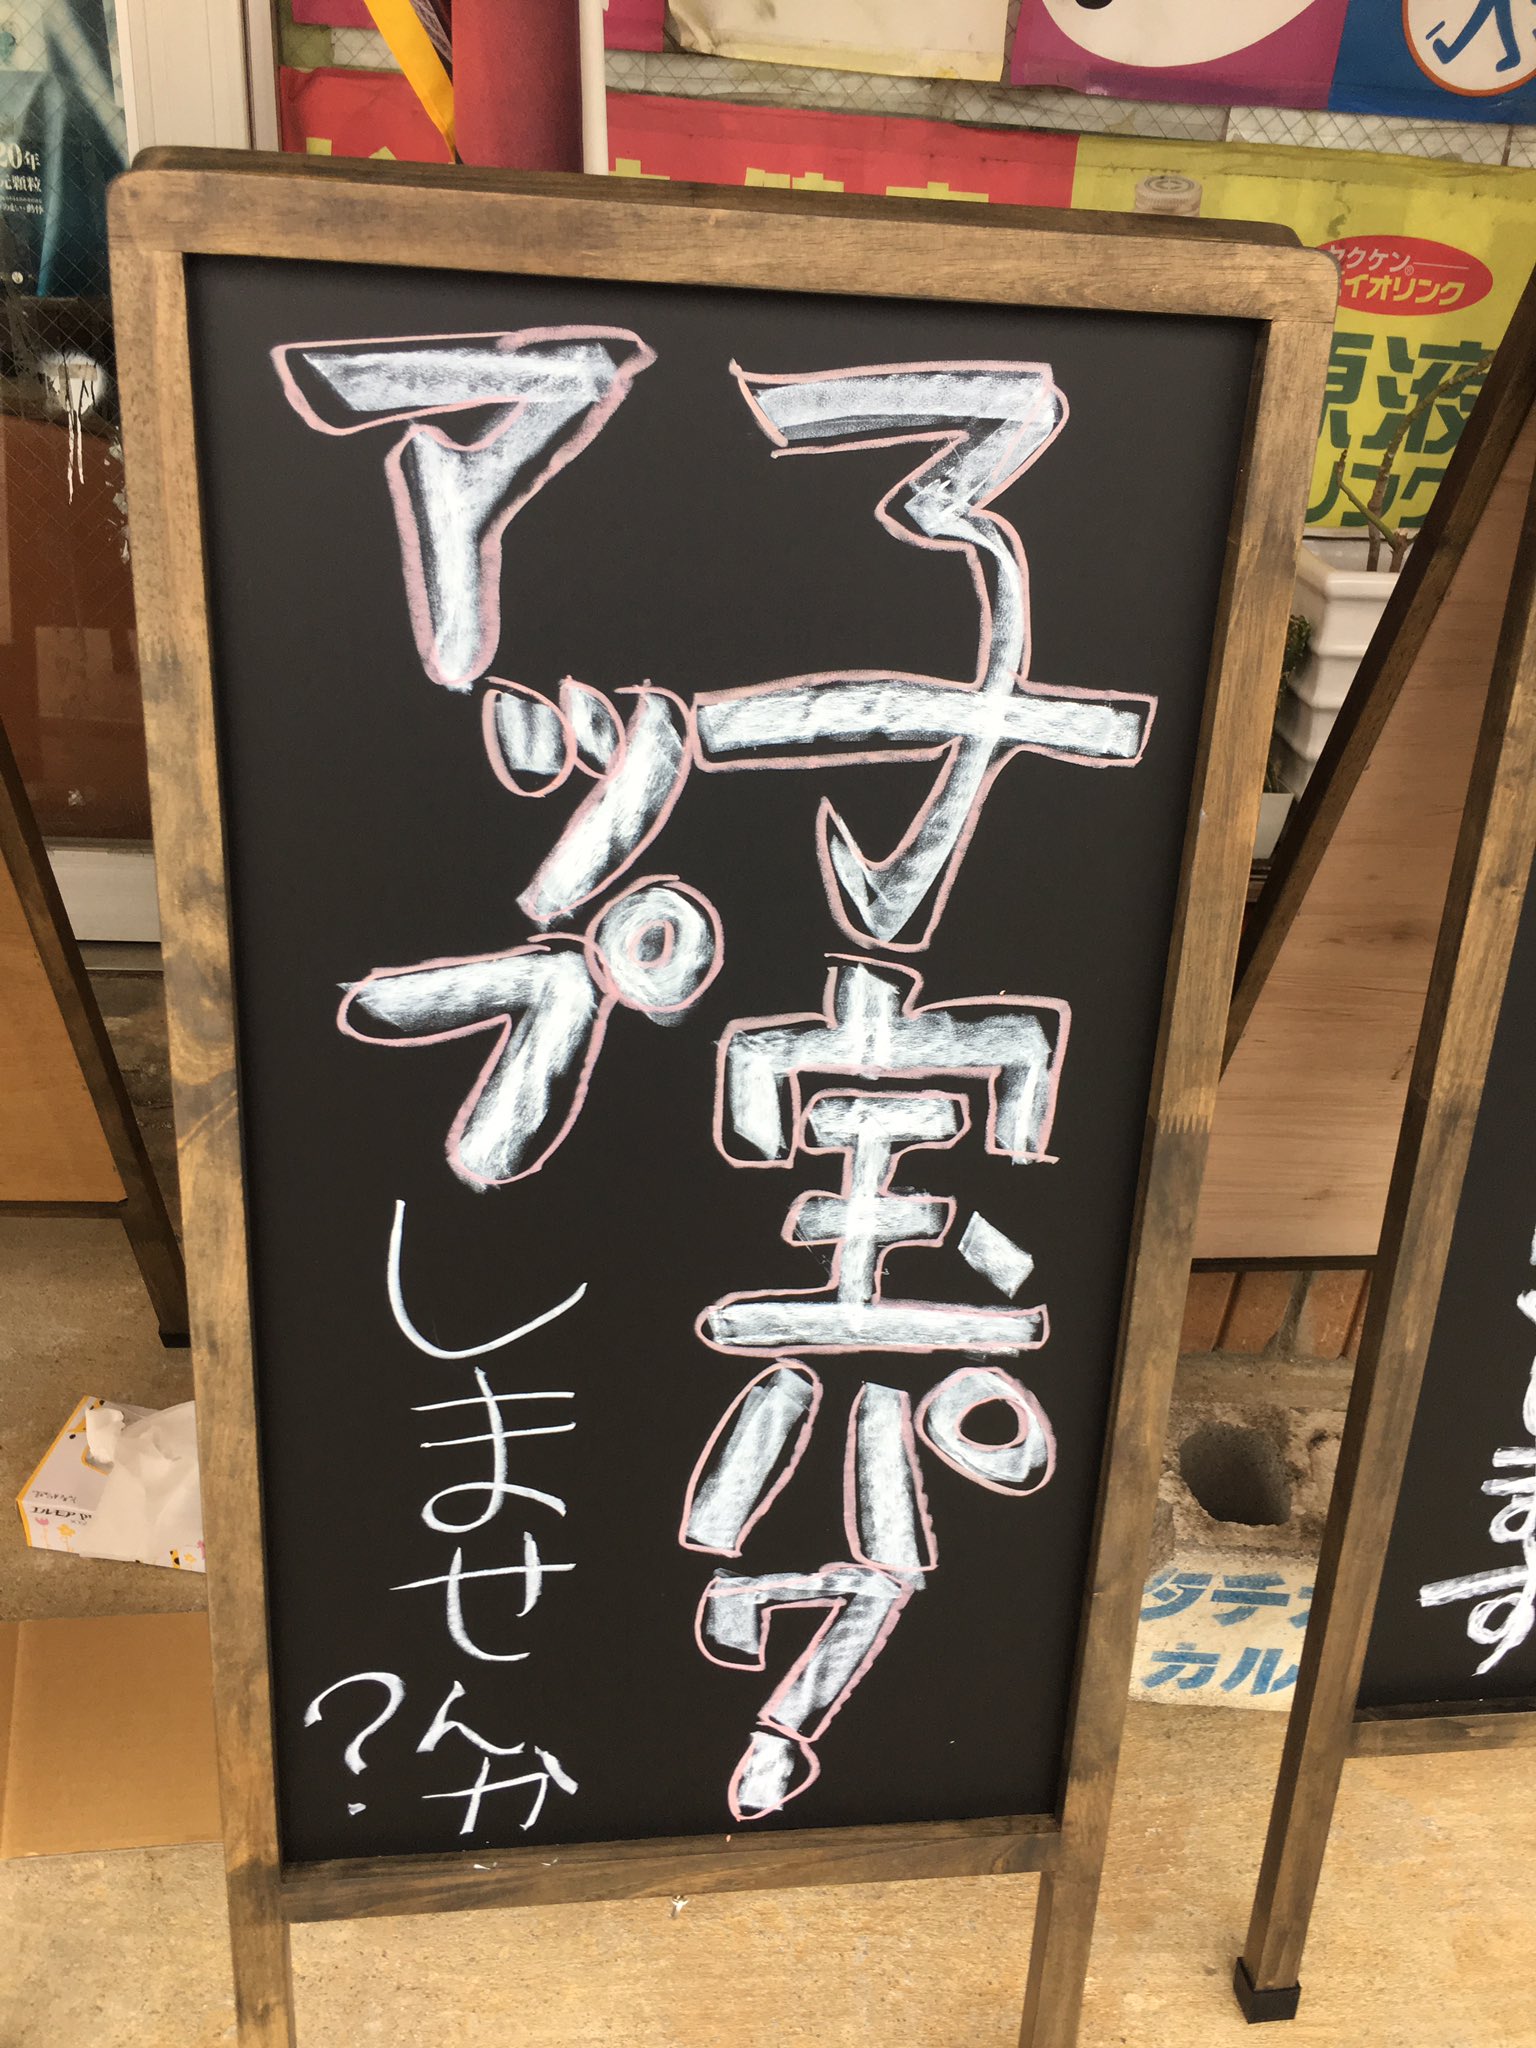 子宝パワー
アップしませんか
?
20年
元顆粒
セクケン
イオリンク
原液
リンク
タチ
カル
エルモア
す